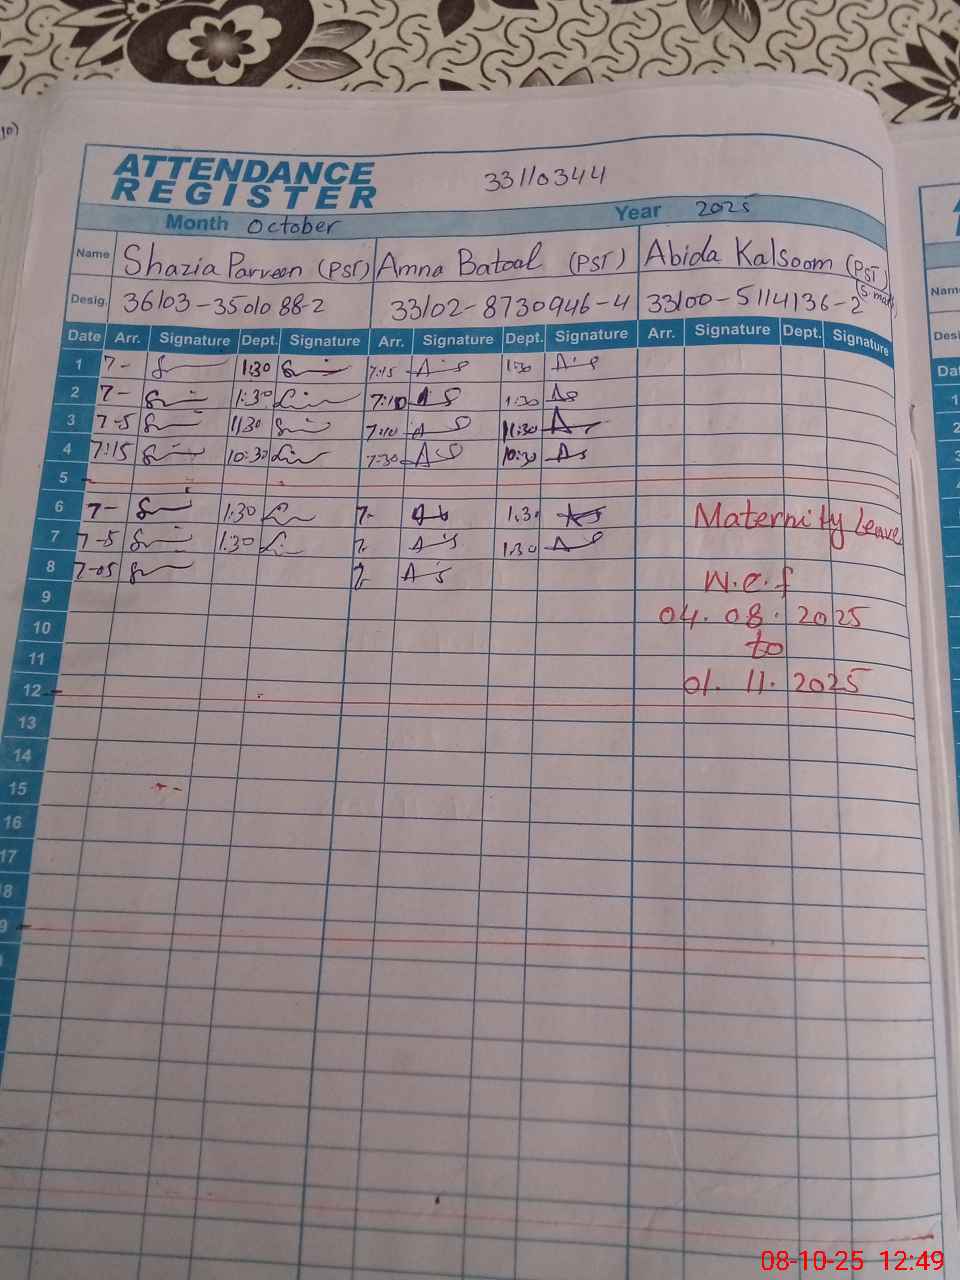 10)
ATTENDANCE
REGISTER
33110344
Month October Year 2025
Name Shazia Parveen (PST) Amna Batool (PST) Abida Kalsoom (PST)
Desig. 36103-3501088-2 33102-8730946-4 33100-5114136-2
Date Arr. Signature Dept. Signature Arr. Signature Dept. Signature Arr. Signature Dept. Signature
1 7- 1:30 7:15 1:30
2 7- 1:30 7:10 1:30
3 7-5 1:30 7:10 1:30
4 7:15 10:30 7:30 10:30
5
6 7- 1:30 7- 1:30 Maternity Leave
7 7-5 1:30 7- 1:30
8 7-05 7- W.e.f
9 04.08.2025
10 to
11
12 01.11.2025
13
14
15
16
17
8
9
Name
Desi
Dat
1
2
3
4
5
6
7
8
9
10
11
12
13
14
15
16
17
18
19
20
08-10-25 12:49